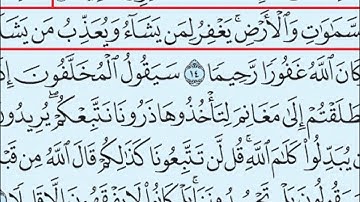 سَّمَٰوَٰتِ وَٱلْأَرْضِ ۚ يَغْفِرُ لِمَن يَشَآءُ وَيُعَذِّبُ مَن يَشَا
كَانَ ٱللَّهُ غَفُورًا رَّحِيمًا ١٤ سَيَقُولُ ٱلْمُخَلَّفُونَ إِذَ
طَلَقْتُمْ إِلَىٰ مَغَانِمَ لِتَأْخُذُوهَا ذَرُونَا نَتَّبِعْكُمْ ۖ يُرِيدُو
يُبَدِّلُوا۟ كَلَٰمَ ٱللَّهِ ۚ قُل لَّن تَتَّبِعُونَا كَذَٰلِكُمْ قَالَ ٱللَّهُ مِن قَبْ